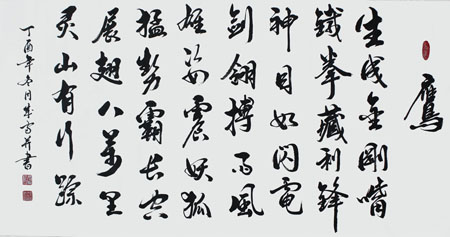 鷹
生成金剛嘴
鐵拳藏利鋒
神目如閃電
劍翎搏雨風
雄姿震妖狐
猛勢霸長空
展翅八萬里
灵山有行踪
丁酉年冬月書